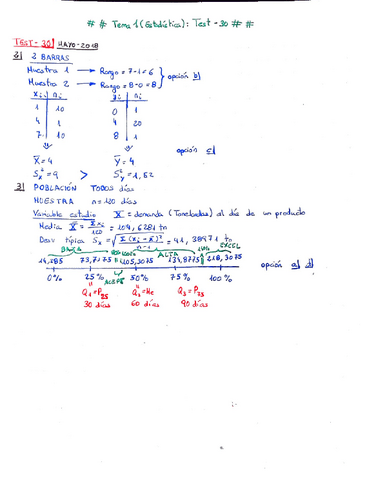 # # Tema 1 (Estadística): Test-30 # #
TEST-30 | MAYO-2018
2| 2 BARRAS
Muestra 1 → Rango = 7-1 = 6
Muestra 2 → Rango = 8-0 = 8
opción b)
xi ni yi ni
1 10 0 1
4 1 4 20
7 10 8 1
opción c)
X̄ = 4 Ȳ = 4
Sx² = 9 > Sy² = 1,52
3| POBLACIÓN TODOS días
MUESTRA n = 120 días
Variable estudio X = demanda (Toneladas) al día de un producto
Media X̄ = Σxi/120 = 104,6281 tn
Desv típica Sx = √(Σ(xi - x̄)²/n-1) = 41,38971 tn
BAJA ALTA EXCEL
14,285 73,7175 105,3075 134,8775 218,3075 opción a) d)
0% 25% 50% 75% 100%
Q1 = P25 Q2 = Me Q3 = P75
30 días 60 días 90 días